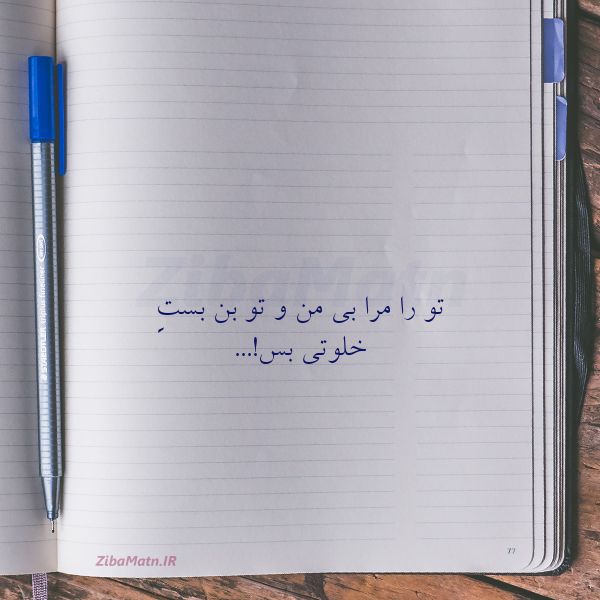 ZibaMatn
تو را مرا بی من و تو بن بستِ
خلوتی بس!...
STAEDTLER triplus fineliner
ZibaMatn.IR
77